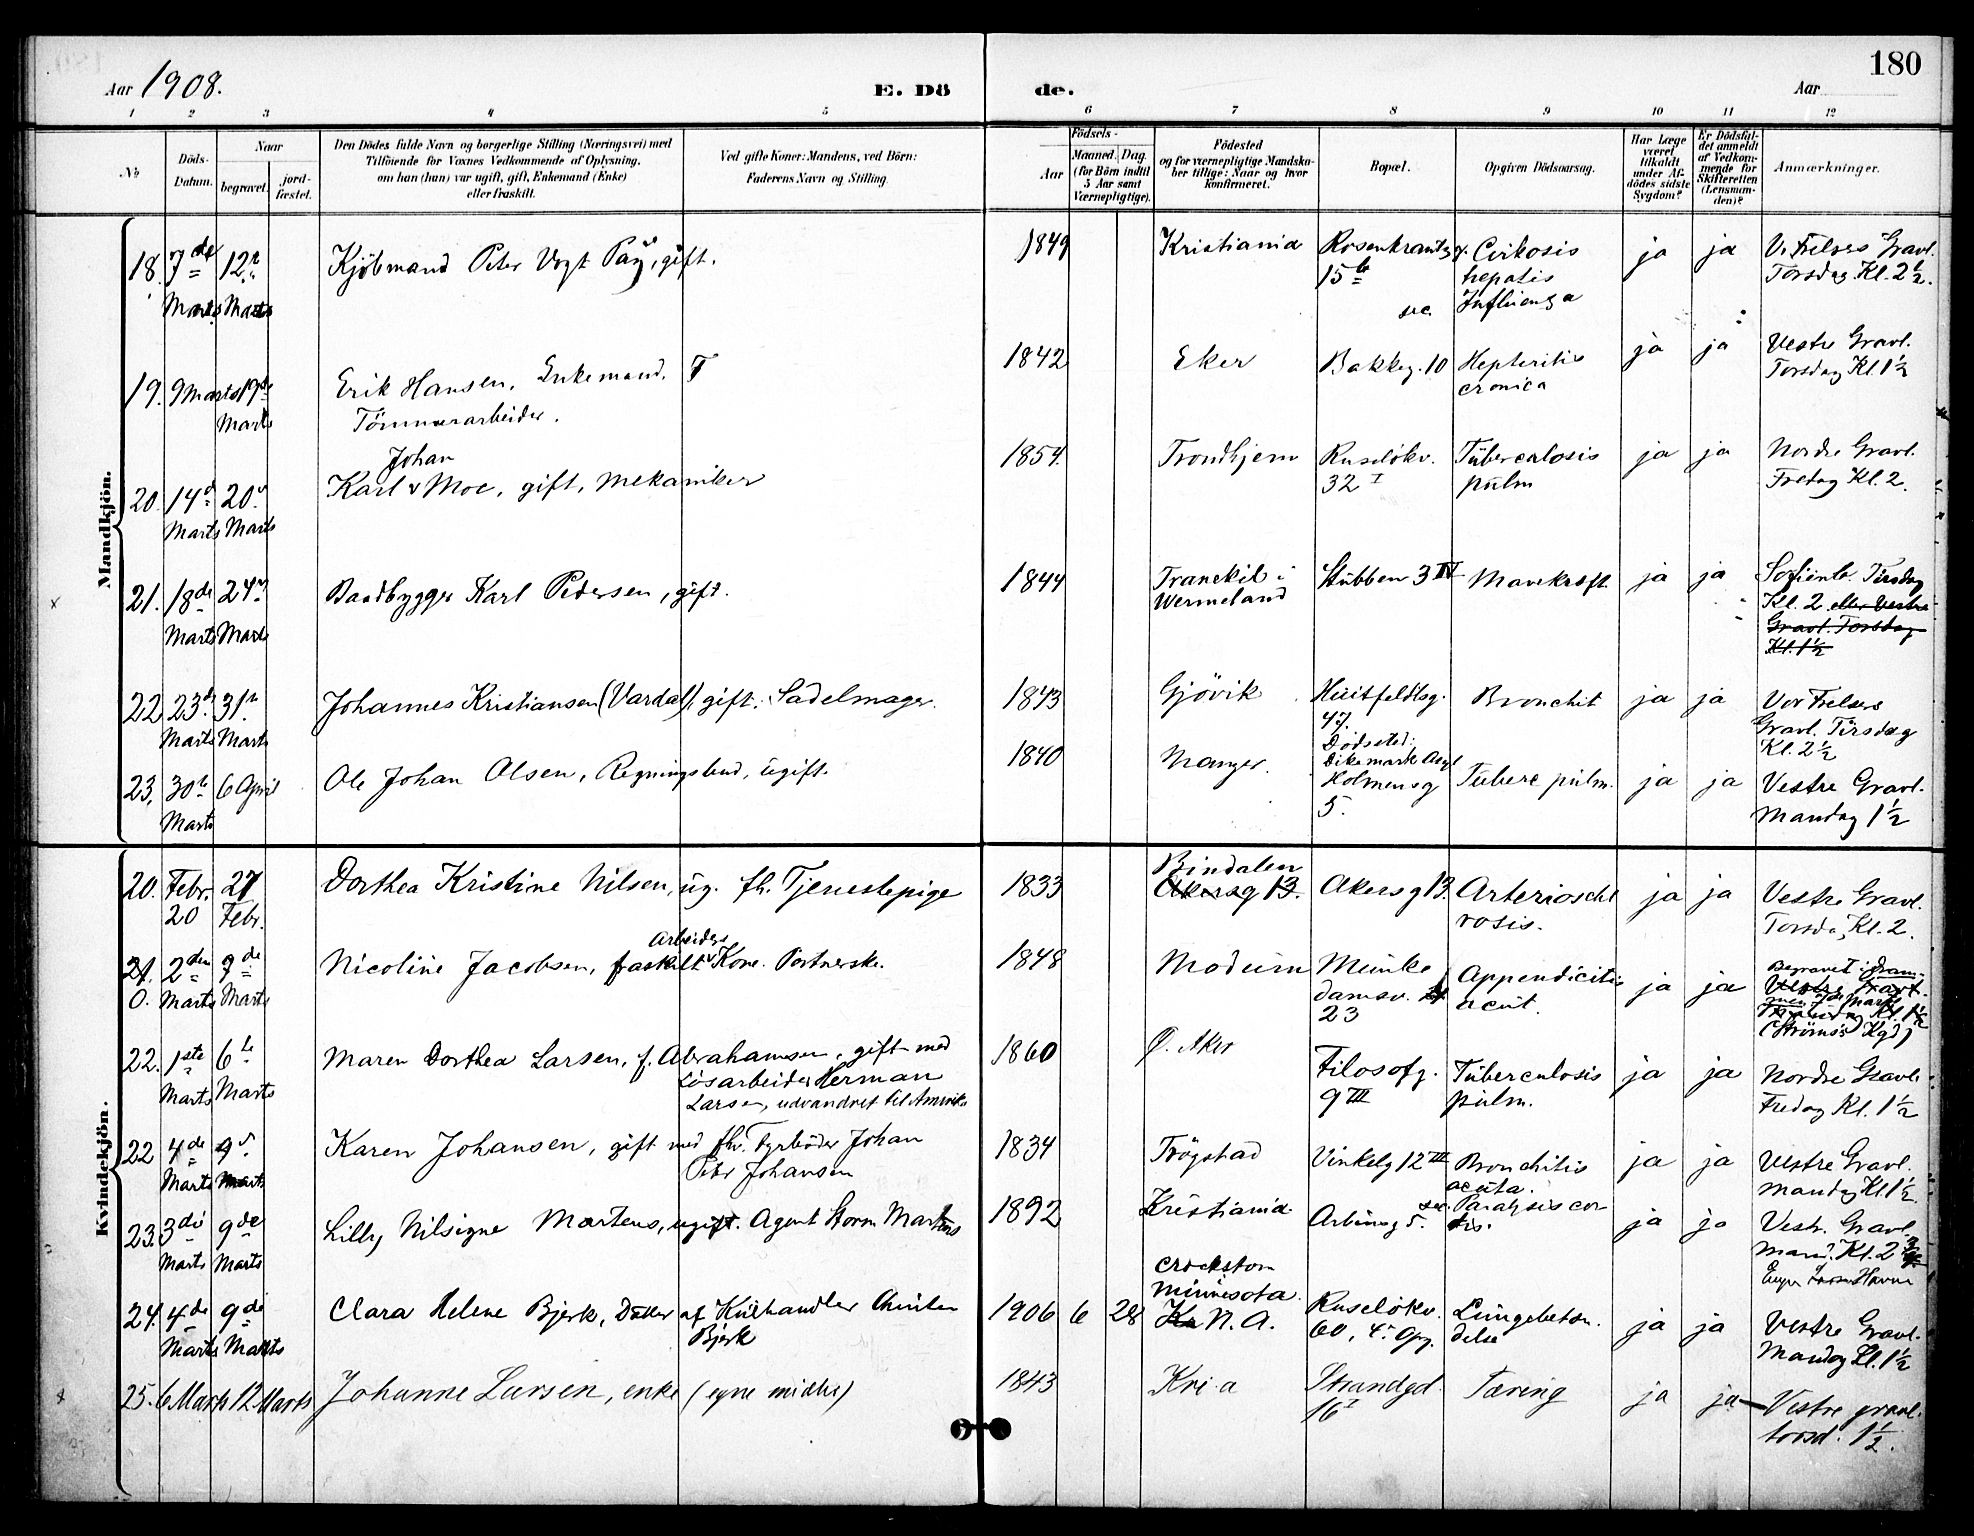 180
Aar 1908.
E. Dö
de.
Aar
1 2 3 4 5 6 7 8 9 10 11 12
No
Döds-Datum.
Naar
begravet.
jord-fæstet.
Den Dödes fulde Navn og borgerlige Stilling (Næringsvei) med
Tilföiende for Voxnes Vedkommende af Oplysning.
om han (hun) var ugift, gift, Enkemand (Enke)
eller fraskilt.
Ved gifte Koner: Mandens, ved Börn:
Faderens Navn og Stilling.
Födsels-
Aar
Maaned. Dag.
(for Börn indtil
5 Aar samt
Værnepligtige).
Födested
og for værnepligtige Mandska-
ber tillige: Naar og hvor
konfirmeret.
Bopæl.
Opgiven Dödsaarsag.
Har Læge
været
tilkaldt
under Af-
dödes sidste
Sygdom?
Er Dödsfal-
det anmeldt
af Vedkom-
mende for
Skifteretten
(Lensman-
den)?
Anmærkninger.
Mandkjön.
18. 7de Marts 12 Marts Kjöbmand Peter Vogt Pay, gift. 1849 Kristiania Rosenkrantzg. 15 Cirkosis
hepatis
Influenza ja ja V. Frelsers Gravl.
Torsdag Kl. 2½.
19. 9 Marts 19de Marts Erik Hansen, Enkemand.
Tömmerarbeider. 1842 Eker Bakkeg. 10 Hepteritis
cronica ja ja Vestre Gravl.
Torsdag Kl. 1½
20. 14 Marts 20 Marts Johan
Karl v Moe, gift, Mekaniker 1854. Trondhjem Ruselökv.
32 I Tuberculosis
pulm ja ja Nordre Gravl.
Fredag Kl. 2.
21. 18de Marts 24 Marts Baadbygger Karl Pedersen, gift. 1844 Tranekil i
Wermeland Stubben 3 IV Mavekræft. ja ja Sofienb. Tirsdag
Kl. 2 eller Vestre
Gravl. Torsdag
Kl. 1½
22 23 Marts 31 Marts Johannes Kristiansen (Vardal), gift. Sadelmager. 1843 Gjövik Huitfeldtsg.
47. Bronchit ja ja Vor Frelsers
Gravl. Tirsdag
Kl. 2½
23. 30 Marts 6 April Ole Johan Olsen, Regningsbud, ugift. 1840 Manger. Dödssted:
Dikemark Asyl
Holmensg
5. Tuberc pulm. ja ja Vestre Gravl.
Mandag 1½
Kvindekjön.
20. Febr. 20 27 Febr. Dorthea Kristine Nilsen, ug. fh. Tjenestepige 1833 Bindalen
Akersg 13. Akersg 13. Arterioscle
rosis. ja ja Vestre Gravl.
Torsda, Kl. 2.
21. 0. 2den Marts 7de Marts Nicoline Jacobsen, fraskilt Arbeiders Kone. Portnerske. 1848 Modum Munke
damsv.
23 Appendicitis
acut. ja ja Begravet i Dram-
men 7de Marts
Vestre Gravl.
Kl. 1½
(Strömsö Kgd)
22. 1ste Marts 6te Marts Maren Dorthea Larsen, f. Abrahamsen, gift med
Lösarbeider Herman
Larsen, udvandret til Amerika 1860 Ö. Aker Filosofg.
9 III Tuberculosis
pulm. ja ja Nordre Gravl.
Fredag Kl. 1½
22 4de Marts 9 Marts Karen Johansen, gift med fhv. Fyrböder Johan
Peter Johansen 1834 Trögstad Vinkelg 12 III Bronchitis
acuta. ja ja Vestre Gravl.
Mandag Kl 1½
23. 3die Marts 9de Marts Lilly Nilsigne Martens, ugift. Agent Storm Martens 1892 Kristiania. Arbinsg 5. Paralysis cor-
dis. ja ja Vestr. Gravl.
Mand. Kl. 2
24. 4de Marts 9de Marts Clara Helene Bjerk, Datter af Kulhandler Christen
Bjerk 1906 6 28 Crockston
Minnesota
N. A. Ruselökv.
60, 4. Opg. Lungebetæn.
delse ja ja Vestre Gravl.
Mandag Kl. 1½
25. 6 Marts 12 Marts Johanne Larsen, enke (egne midler) 1843 Kri.a Strandgd.
16 I Tæring ja ja Vestre gravl.
torsd. 1½.